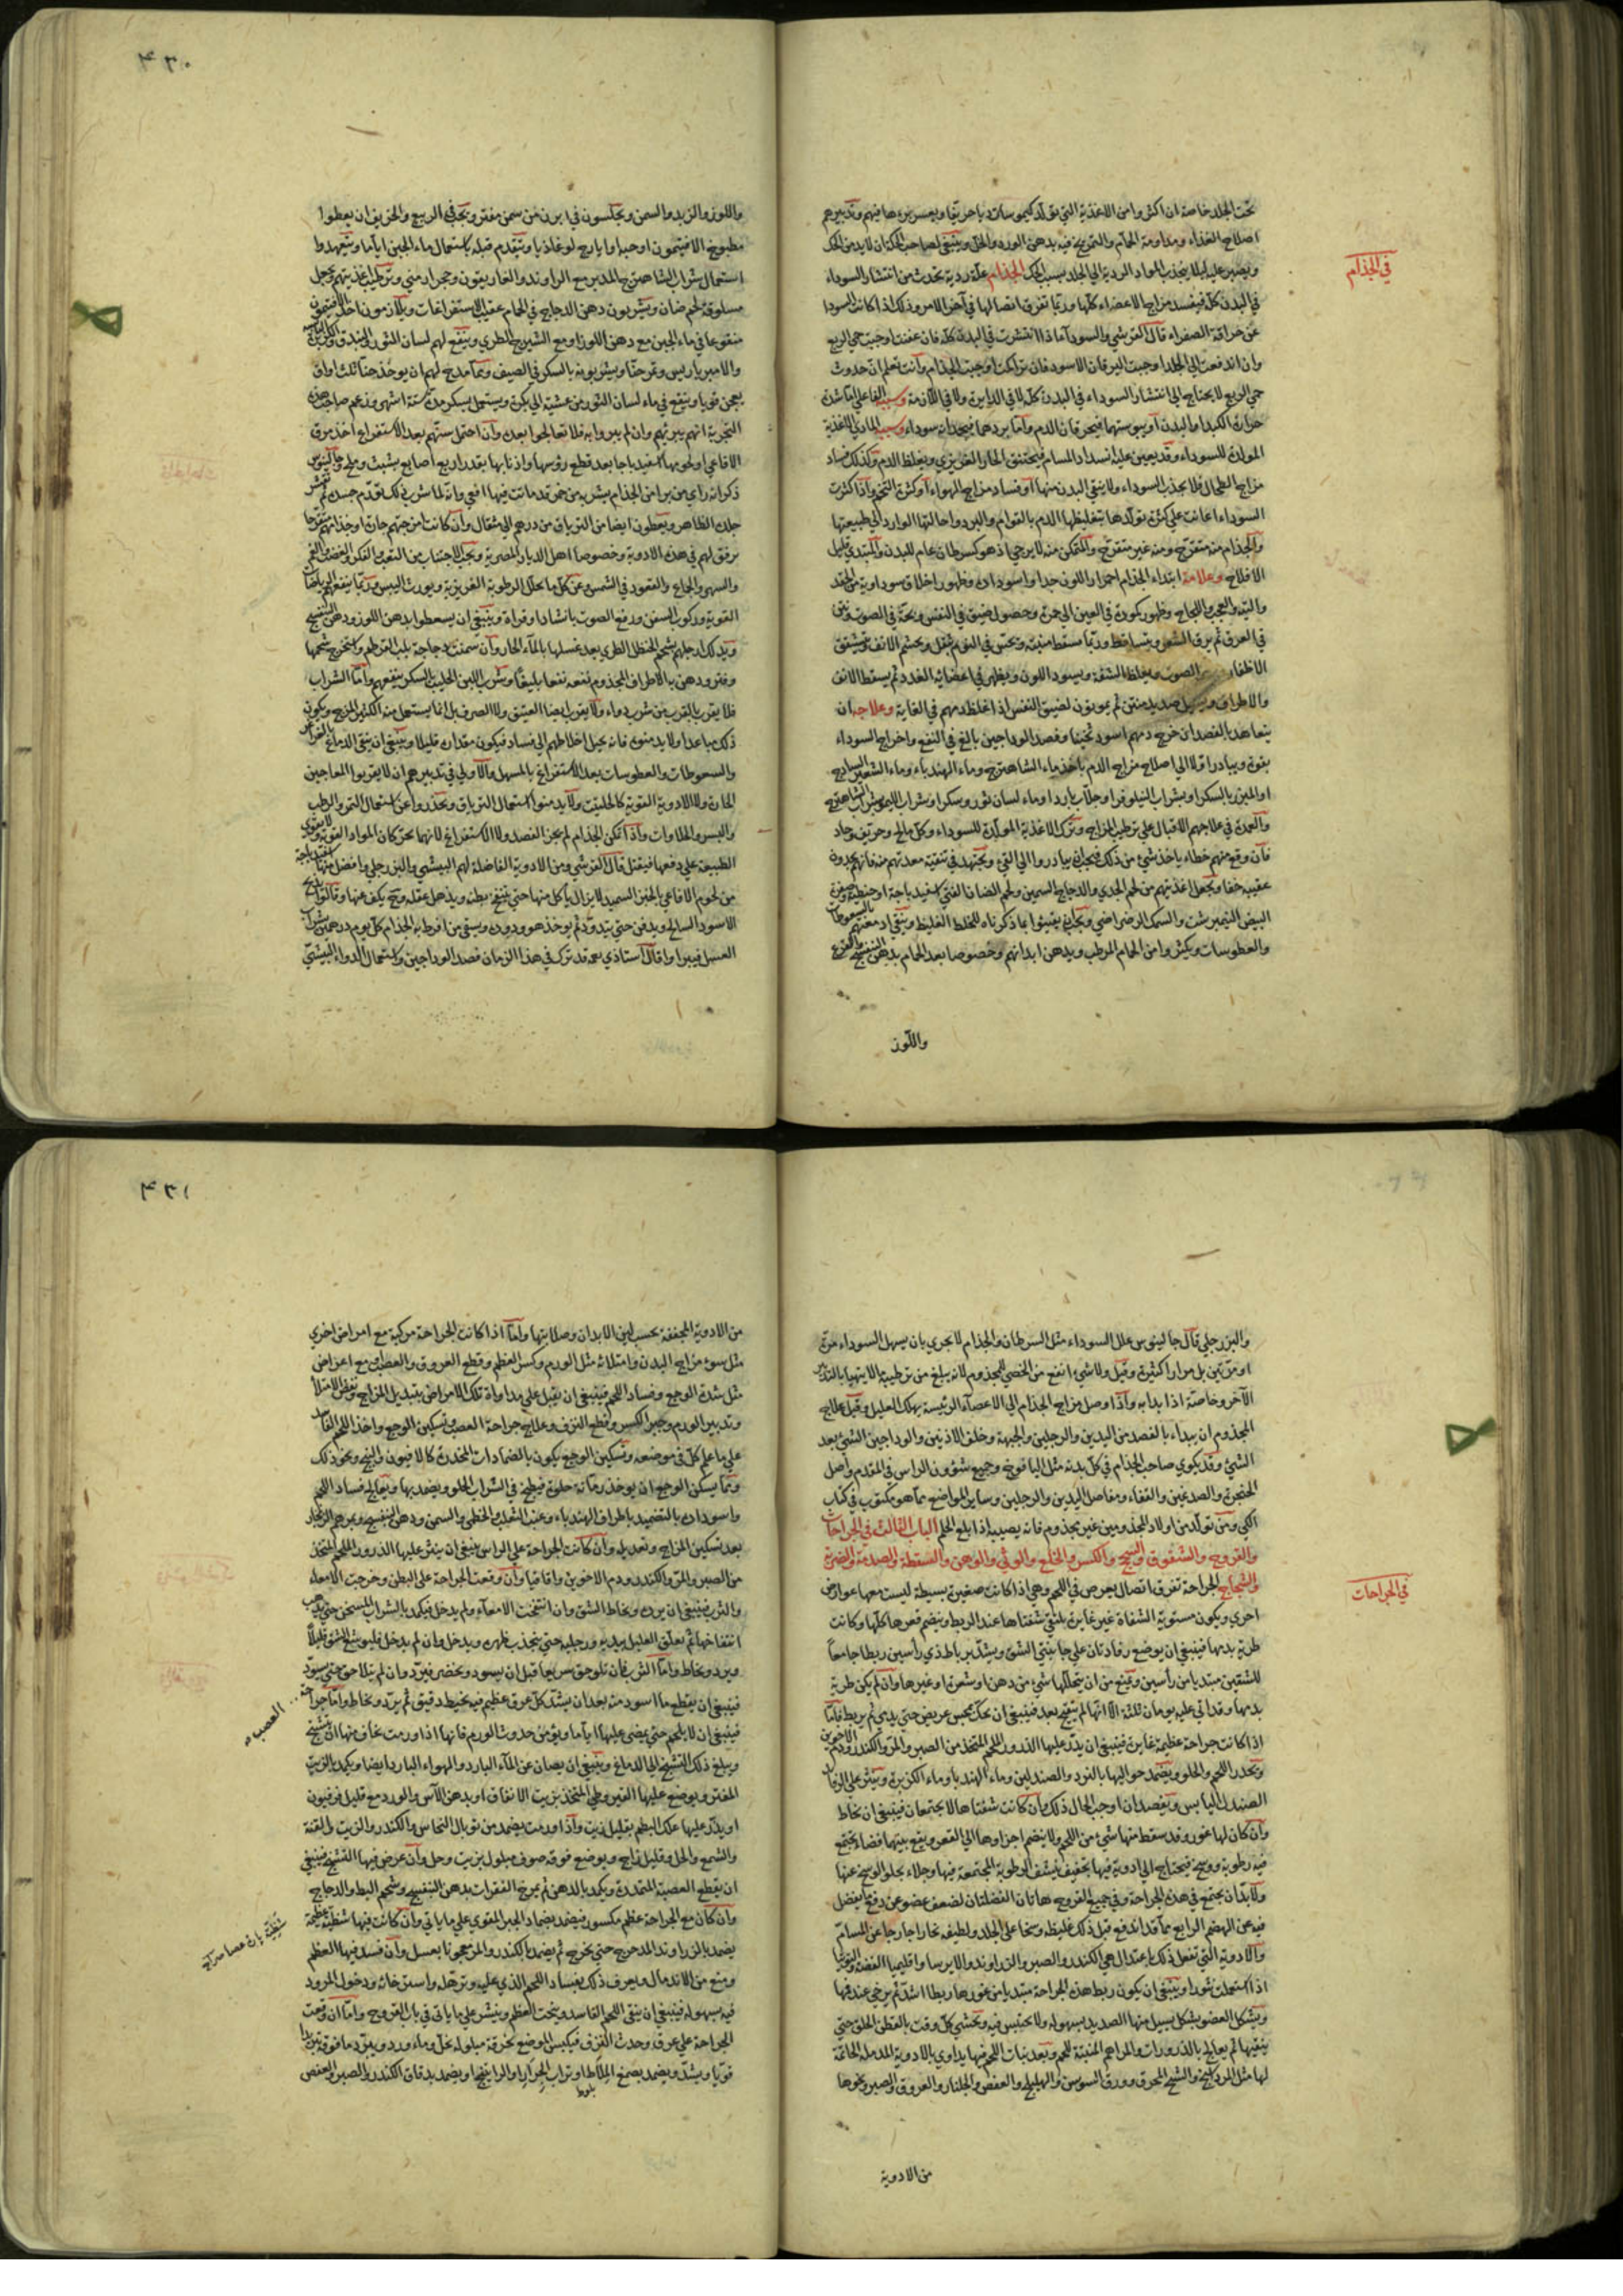 في الجذام
تحت الجلد خاصة ان اكثروا من الاغذية التي تولد كيموسات دياحريفا ويعسر برءها فيهم وتدبيرهم
اصلاح الغذاء ومداومة الحمام والتمريخ فيه بدهن الورد والخل وينبغي لصاحب الحكة ان لا يدمن الحك
ويصبر عليه ليلا ينجذب المواد الردية الي الجلد بسبب الحك الجذام علة ردية تحدث من انتشار السوداء
في البدن كله فيفسد مزاج الاعضاء كلها وربما تفرق اتصالها في آخر الامر وذلك اذا كانت السودا
عن حراقة الصفراء قال القرشي والسودآ ماذا انتشرت في البدن كله فان عفنت اوجبت حمي الربع
وان اندفعت الي الجلد اوجبت اليرقان الاسود فان تراكمت اوجبت الجذام وانت تعلم ان حدوث
حمي الربع لا يحتاج الي انتشار السوداء في البدن كله لا في الدايرة ولا في اللازمة وسببه الفاعلي اما شدة
حرارة الكبد او البدن او يبوستهما فيحرقان الدم واما بردهما فيجمدانه سوداء وسببه المادي الاغذية
المولدة للسوداء وقد يعين عليه انسداد المسام فيختنق الحار الغريزي ويغلظ الدم وكذلك فساد
مزاج الطحال فلا يجذب السوداء ولا ينقي البدن منها او فساد مزاج الهواء او كثرة التخم واذا كثرت
السوداء اعانت علي كثرة تولدها بتغليظها الدم بالقوام والبرد واحالتها الوارد الي طبيعتها
والجذام منه متقرح ومنه غير متقرح والمتمكن منه لا يرجي اذ هو كسرطان عام للبدن والمبتدي قليل
الافلاح وعلامة ابتداء الجذام احمرار اللون جدا واسوداده وظهور اخلاق سوداوية من الحقد
والتيه والعجب واللجاج وظهور كمودة في العين الي حمرة وحصول ضيق في النفس وبحة في الصوت ونتن
في العرق ثم يرق الشعر ويتساقط وربما سقط منبته ويحس في النوم بثقل ويخشم الانف ويتشقق
الاظفار الصوت ويغلظ الشفة ويسود اللون ويظهر في اعضائه الغدد ثم يسقط الانف
والاطراف ويسيل صديد منتن ثم يموتون لضيق النفس اذا غلظ دمهم في الغاية وعلاجه ان
يتعاهد بالفصد ان خرج دمهم اسود ثخينا وفصد الوداجين بالغ في النفع واخراج السوداء
بقوة ويبادر اولا الي اصلاح مزاج الدم باخذ ماء الشاهترج وماء الهندباء وماء الشعير الساذج
او المبزر بالسكر او بشراب النيلوفر او جلاب بارد او ماء لسان ثور وسكر او شراب الليمو بشراب الشاهترج
والعمدة في علاجهم الاقبال علي ترطيب المزاج وترك الاغذية المولدة للسوداء وكل مالح وحريف وحاد
فان وقع منهم خطاء باخذ شئ من ذلك فيجب ان يبادروا الي القئ ويجتهد في تنقية معدتهم منه فانهم يجدون
عقيبه خفا ويجعل اغذيتهم من لحم الجدي والدجاج السمين ولحم الضان الفتي اسفيدباجة او حنطية وصفرة
البيض النيمبرشت والسمك الرضراضي ويجب ان يقيئوا بما ذكرناه للخلط الغليظ وينقي ادمغتهم بالسعوطات
والعطوسات ويكثروا من الحمام المرطب ويدهن ابدانهم وخصوصا بعد الحمام بدهن البنفسج والقرع
واللوز
٤٣٠
واللوز والزبد والسمن ويجلسون في ابزن من سمن مفتر ويجب في الربيع والخريف ان يعطوا
مطبوخ الافتيمون او حبه او ايارج لوغاذيا ويتقدم قبله باستعمال ماء الجبن اياما ويتعهدوا
استعمال شراب الشاهترج المدبر مع الراوند والغاريقون وحجر ارمني وترطيب اغذيتهم ويجعل
مسلوقة لحم ضان ويشربون دهن الدجاج في الحمام عقيب الاستفراغات ويلازمون اخذ الافتيمون
منقوعا في ماء الجبن مع دهن اللوز او مع الشيرج الطري وينفع لهم لسان الثور
والامبرباريس وتمرحنا ويشربونه بالسكر في الصيف ومما مدح لهم ان يوخذ حنا ثلث اواق
يعجن قويا وينقع في ماء لسان الثور من عشية الي بكرة ويستعمل بسكر مدة ستة اشهر وزعم صاحب هذه
التجربة انهم يبريهم وان لم يبروا به فلا تعالجوا بعده وان احتمل سنهم بعد الاستفراغ اخذ مرق
الافاعي او لحومها اسفيدباجا بعد قطع رؤسها واذنابها بقدر اربع اصابع بشبث وملح وجالينوس
ذكر انه راي من برا من الجذام بشربه من خمر قد ماتت فيها افعي وانه لما شرب ذلك تورم جسده ثم تقشر
جلده الظاهر ويعطون ايضا من الترياق من درهم الي مثقال وان كانت امزجتهم حارة او جذامهم متقرحا
يرفق لهم في هذه الادوية وخصوصا اهل الديار المصرية ويجب الاجتناب من التعب والفكر والغضب والغم
والسهر والجماع والقعود في الشمس وعن كل ما يحلل الرطوبة الغريزية ويورث اليبس وربما ينفعهم الرياضات
القوية وركوب السفن ورفع الصوت بانشاد او قراءة وينبغي ان يسعطوا بدهن اللوز ودهن البنفسج
ويدلك ارجلهم بشحم الحنظل الطري بعد غسلها بالماء الحار وان سمنت دجاجة بلب القرطم واستخرج شحمها
وفتر ودهن به الاطراف المجذوم نفعه نفعا بليغا وشرب اللبن الحليب بالسكر ينفعهم واما الشراب
فلا يقرب بالقرب من شرب دواء ولا يقرب ايضا العتيق ولا الصرف بل انما يستعمل منه الكثير المزج ويكون
ذلك مباعدا ولا يدمنوه فانه يحيل اخلاطهم الي فساد فيكون مقداره قليلا وينبغي ان ينقي الدماغ بالغراغر
والسعوطات والعطوسات بعد الاستفراغ بالمسهل والاولي في تدبيرهم ان لا يقربوا المعاجين
الحارة ولا الادوية القوية كالحلتيت ولا يدمنوا استعمال الترياق ويحذروا عن استعمال التمر والرطب
والبسر والحلاوات واذا تمكن الجذام لم يجز الفصد ولا الاستفراغ لانهما يحركان المواد القوية ولا يقوي
الطبيعة علي دفعها فيقتل قال القرشي ومن الادوية الفاضلة لهم البيشي والبزرجلي وافضل منها
من لحوم الافاعي بالخبز السميد لا يزال ياكل منها حتي ينتفخ بطنه ويذهل عقله وح يكف عنها وقالوا يذبح
الاسود السالخ ويدفن حتي يتدود ثم يوخذ هو ودوده ويسقي من افرط به الجذام كل يوم درهمين بشراب
العسل فيبرا وقال استاذي بعد قد ترك في هذا الزمان فصد الوداجين واستعمال الدواء البيشي
في الجراحات
والبزرجلي قال جالينوس علل السوداء مثل السرطان والجذام لا يحري بان يسهل السوداء مرة
او مرتين بل مرارا كثيرة وقيل ولا شئ انفع من الخصي للمجذوم لانه يبلغ من ترطيبه ما لا يتهيا بالتدبير
الآخر وخاصة اذا بدا به واذا وصل مزاج الجذام الي الاعضآء الرئيسة يهلك العليل وقيل علاج
المجذوم ان يبداء بالفصد من اليدين والرجلين والجبهة وخلف الاذنين والوداجين الشئ بعد
الشئ وقد يكوي صاحب الجذام في كل بدنه مثل اليافوخ وجميع شؤون الراس في المقدم واصل
الحنجرة والصدغين والقفاء ومفاصل اليدين والرجلين وساير المواضع مما هو مكتوب في كتاب
الكي ومن تولد من اولاد المجذومين غير مجذوم فانه يصيبه اذا بلغ الحلم الباب الثالث في الجراحات
والقروح والشقوق والسحج والكسر والخلع والوثي والوهن والسقطة والصدمة والضربة
والشجاج الجراحة تفرق اتصال يعرض في اللحم وهي اذا كانت صغيرة بسيطة ليست معها عوارض
اخري ويكون مستوية الشفاة غير غايرة يلتقي شفتاها عند الربط وينضم قعرها كلها وكانت
طرية بدمها فينبغي ان يوضع رفادتان علي جانبتي الشق ويشد برباط ذي رأسين ربطا جامعا
للشقين مبتديا من رأسين ويمنع من ان يتخللها شئ من دهن او شعرة او غيرها وان لم يكن طرية
بدمها وقد اتي عليه يومان ثلثة الا انها لم يتقيح بعد فينبغي ان يحك بمجس عريض حتي يدمي ثم يربط فاما
اذا كانت جراحة عظيمة غايرة فينبغي ان يذر عليها الذرور الملحم المتخذ من الصبر والمر والكندر ودم الاخوين
ويحذر اللحم والحلو ويضمد حواليها بالنرد والصندلين وماء الهندبا وماء الكزبرة وينثر علي الرفاد
الصندل اليابس ويفصد ان اوجب الحال ذلك وان كانت شفتاها لا يجتمعان فينبغي ان تخاط
وان كان لها غور وقد سقط منها شئ من اللحم ولا ينضم اجزاوها الي القعر ويقع بينها فضاء يجتمع
فيه رطوبة ووسخ فيحتاج الي ادوية فيها تجفيف لينشف الرطوبة المجتمعة فيها وجلاء يجلو الوسخ عنها
ولا بد ان يجتمع في هذه الجراحة وفي جميع القروح هاتان الفضلتان لضعف عضو عن دفع ما يفضل
فيه عن الهضم الرابع مما قد اندفع قبل ذلك غليظه وسخا علي الجلد ولطيفه بخارا جارجا عن المسام
والادوية التي تفعل ذلك باعتدال هي الكندر والصبر والزراوند والايرسا واقليميا الفضة والتوتيا
اذا استعملت نثورا وينبغي ان يكون ربط هذه الجراحة مبتديا من غورها ربطا اشد ثم يرخي عند فمها
ويشكل العضو بشكل يسيل منها الصديد بسهولة ولا يحتبس فيه ويحشي كل وقت بالقطن الخلق حتي
ينقيها ثم يعالج بالذرورات والمراهم المنبتة للحم وبعد نبات اللحم فيها يداوي بالادوية المدملة الخاتمة
لها مثل المرداسنج والشيح المحرق وورق السوسن والهليلج والعفص والجلنار والعروق والصبر ونحوها
من الادوية
٤٣١
من الادوية المجففة بحسب لين الابدان وصلابتها واما اذا كانت الجراحة مركبة مع امراض اخري
مثل سوء مزاج البدن وامتلائه مثل الورم وكسر العظم وقطع العروق والعصب او مع اعراض
مثل شدة الوجع وفساد اللحم فينبغي ان يقبل علي مداواة تلك الامراض بتبديل المزاج ونفض الامتلأ
وتدبير الورم وجبر الكسر وقطع النزف وعلاج جراحة العصب وتسكين الوجع واخذ اللحم الفاسد
علي ما علم كل في موضعه وتسكين الوجع يكون بالضمادات المخدرة كالافيون والبنج ونحو ذلك
ومما يسكن الوجع ان يوخذ رمانة حلوة فيطبخ في الشراب الحلو ويضمد بها ويعالج فساد اللحم
واسوداده بالتضميد باطراف الهندباء وعنب الثعلب والخطمي والسمن ودهن البنفسج وبمرهم الزنجار
بعد تسكين المزاج وتعديله وان كانت الجراحة علي الراس فينبغي ان ينثر عليها الذرور الملحم المتخذ
من الصبر والمر والكندر ودم الاخوين واقاقيا وان وقعت الجراحة علي البطن وخرجت الامعاء
والثرب فينبغي ان يرد ويخاط الشق وان انتفخت الامعآء ولم يدخل فيكمد بالشراب المسخن حتي يذهب
انتفاخها ثم يعلق العليل بيديه ورجليه حتي ينجذب ظهره ويدخل وان لم يدخل فليوسع الشق قليلا
ويرد ويخاط واما الثرب فان تلوحق سريعا قبل ان يسود ويخضر فيرد وان لم يتلاحق حتي يسود
فينبغي ان يقطع ما اسود منه بعد ان يشد كل عرق عظيم فيه بخيط دقيق ثم يرد ويخاط واما جراحة
العصب
فينبغي ان لا يلحم حتي يمضي عليها اياما ويؤمن حدوث الورم فانها اذا ورمت يخاف منها ان يتشنج
ويبلغ ذلك التشنج الي الدماغ وينبغي ان يصان عن المآء البارد والهواء البارد ايضا ويكمد بالزيت
المفتر ويوضع عليها القيروطي المتخذ بزيت الانفاق او بدهن الآس والورد مع قليل فرفيون
او يذر عليها علك البطم بقليل زيت واذا ورمت يضمد من توبال النحاس والكندر والزيت والقنة
والشمع والخل وقليل زاج ويوضع فوقه صوف مبلول بزيت وخل وان عرض فيها التشنج فينبغي
ان يقطع العصبة المتمددة ويكمد بالدهن ثم يمرخ الفقرات بدهن البنفسج وشحم البط والدجاج
وان كان مع الجراحة عظم مكسور فيضمد بضماد الجبر المقوي علي ما ياتي وان كانت فيها شظية عظيمة
يضمد بالزراوند المدحرج حتي يخرج ثم يضمد بالكندر والمر معجونا بعسل وان فسد فيها العظم
ومنع من الاندمال ويعرف ذلك بفساد اللحم الذي عليه وترهله واسترخائه ودخول المرود
فيه بسهولة فينبغي ان ينقي اللحم الفاسد وينحت العظم وينشر علي ما ياتي في باب القروح واما ان وقعت
الجراحة علي عرق وحدث النزف فيكبس الموضع بخرقة مبلولة بخل وماء ورد ويبرد ما فوقه تبريدا
قويا ويشد ويضمد بصمغ البلاط او تراب الجرار او الراتينج او يضمد بدقاق الكندر والصبر والعفص
بلوط